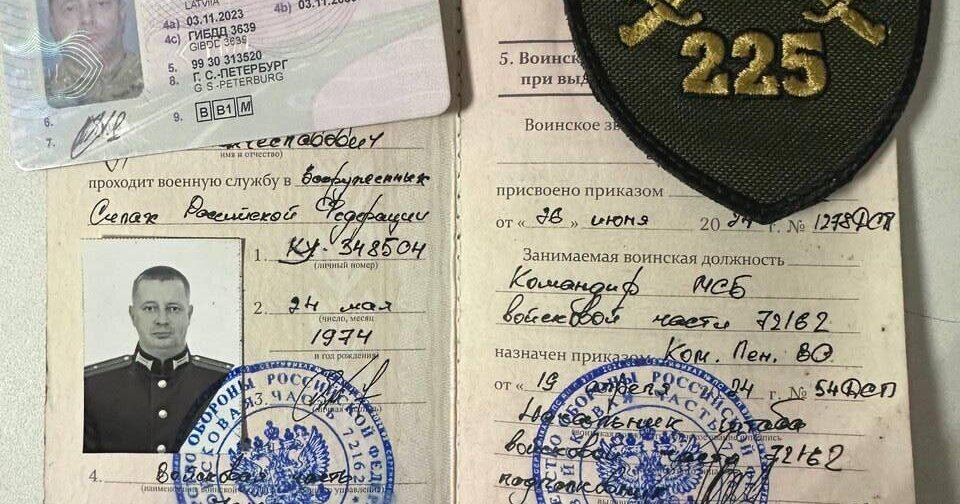 LATVIA
4a) 03.11.2023
4b) 03.11.
4c) ГИБДД 3639
GIBDD 3639
5. 99 30 313520
8. Г. С.-ПЕТЕРБУРГ
G S-PETERBURG
6.
7.
9. B B1 M
(имя и отчество)
проходит военную службу в Вооруженных
Силах Российской Федерации
1. КУ-348504
(личный номер)
2. 24 мая
(число, месяц
1974
и год рождения)
3.
(личная подпись)
4. Войсковая часть
225
5. Воинск
при выд
Воинское зв
присвоено приказом
от « 26 » июня 20 24 г. № 1278ДСП
Занимаемая воинская должность
Командир МСБ
войсковой части 72162
назначен приказом Ком. Лен. ВО
от « 19 апреля 24 г. № 54ДСП
Начальник штаба
войсковой части 72162
подполковник